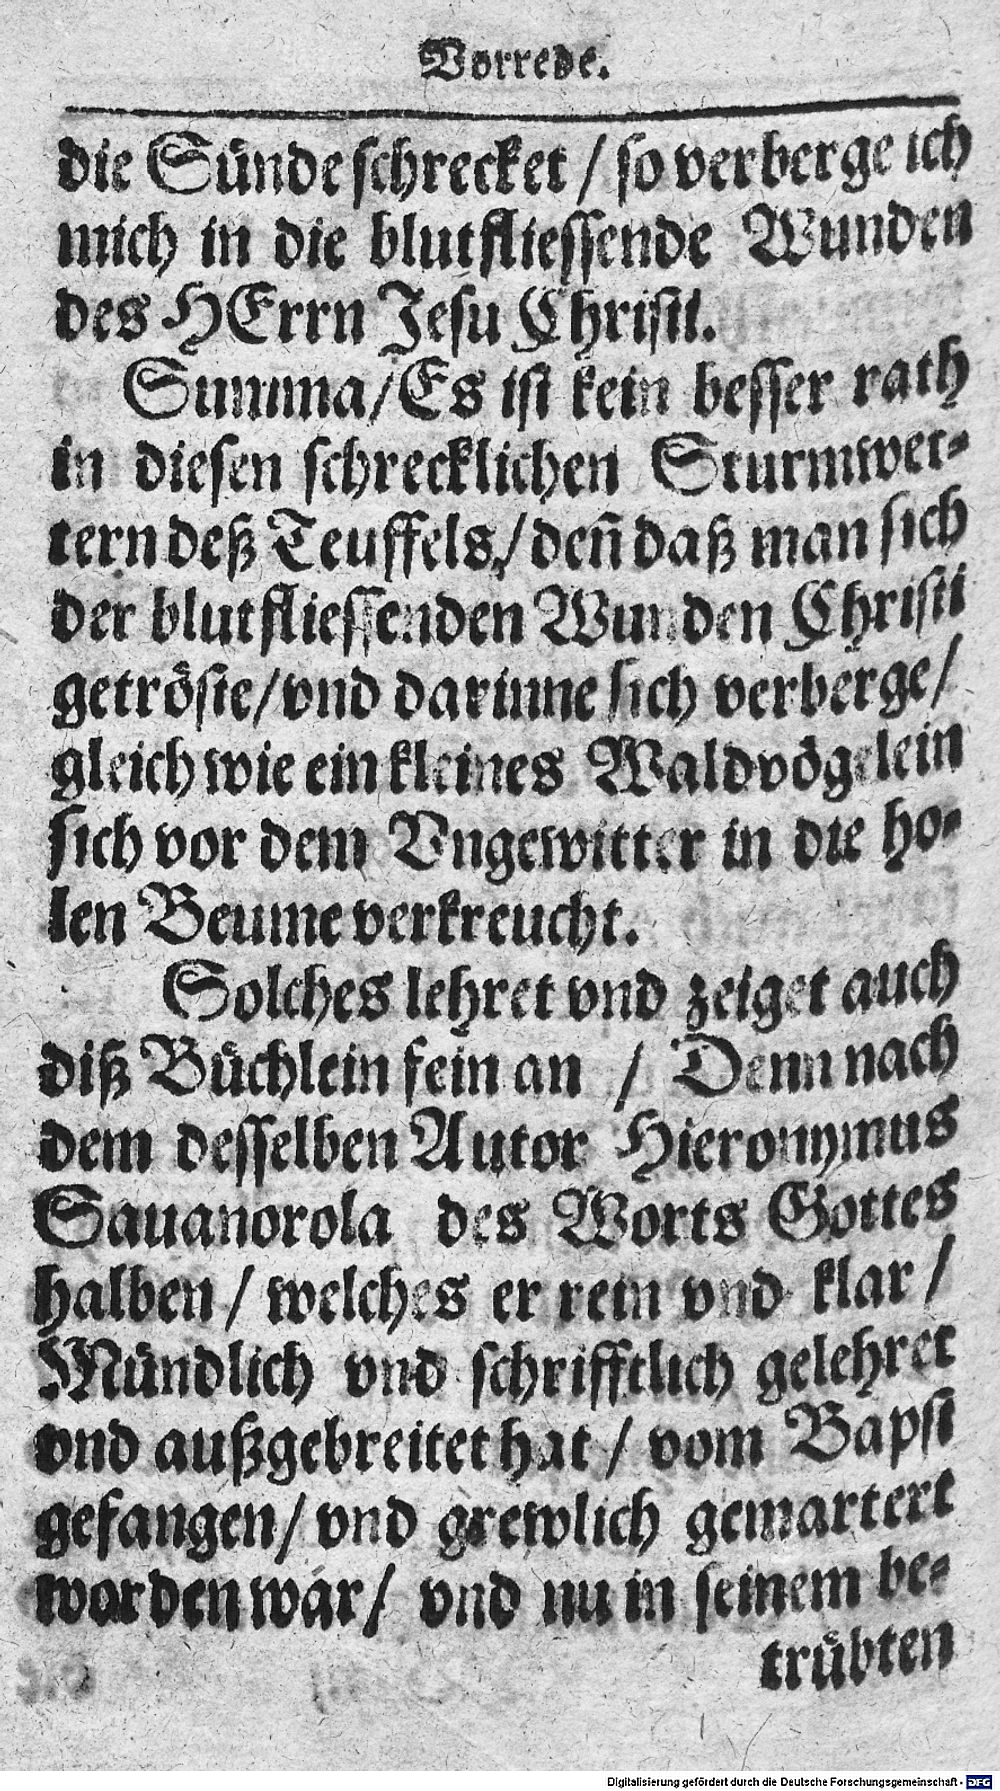 Vorrede.
die Sünde schrecket / so verberge ich
mich in die blutfliessende Wunden
des HErrn Jesu Christi.
Summa / Es ist kein besser rath
in diesen schrecklichen Sturmwet-
tern deß Teuffels / deñ daß man sich
der blutfliessenden Wunden Christi
getröste / vnd darinne sich verberge /
gleich wie ein kleines Waldvögelein
sich vor dem Vngewitter in die ho-
len Beume verkreucht.
Solches lehret vnd zeiget auch
diß Büchlein fein an / Denn nach
dem desselben Autor Hieronymus
Sauanorola des Worts Gottes
halben / welches er rein vnd klar /
Mündlich vnd schrifftlich gelehret
vnd außgebreitet hat / vom Bapst
gefangen / vnd grewlich gemartert
worden war / vnd nu in seinem be-
trübten
Digitalisierung gefördert durch die Deutsche Forschungsgemeinschaft - DFG